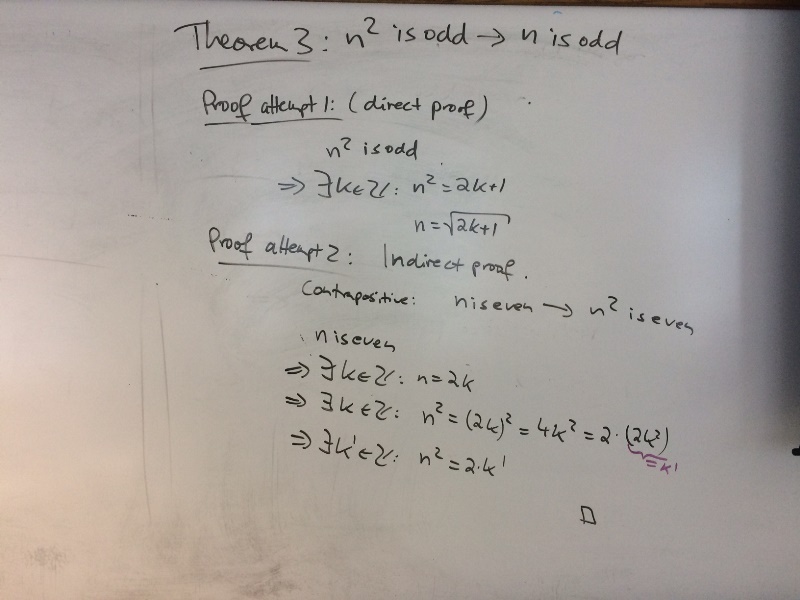 Theorem 3: n² is odd → n is odd
Proof attempt 1: (direct proof)
n² is odd
⇒ ∃k∈ℤ: n² = 2k+1
n = √(2k+1)
Proof attempt 2: Indirect proof.
Contrapositive: n is even → n² is even
n is even
⇒ ∃k∈ℤ: n = 2k
⇒ ∃k∈ℤ: n² = (2k)² = 4k² = 2·(2k²)
=k'
⇒ ∃k'∈ℤ: n² = 2·k'
□